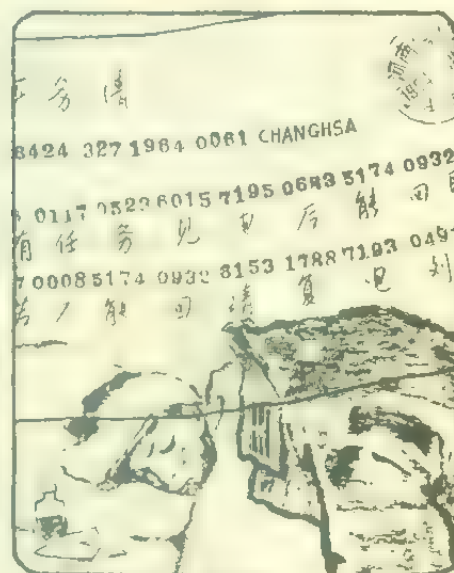 河南
务
8424 327 1964 0061 CHANGHSA
0117 0523 6015 7195 0683 5174 0932
有 任 务 见 电 后 能 回
00085174 0932 8153 1788 7193 049
若 不 能 回 请 复 电 刘